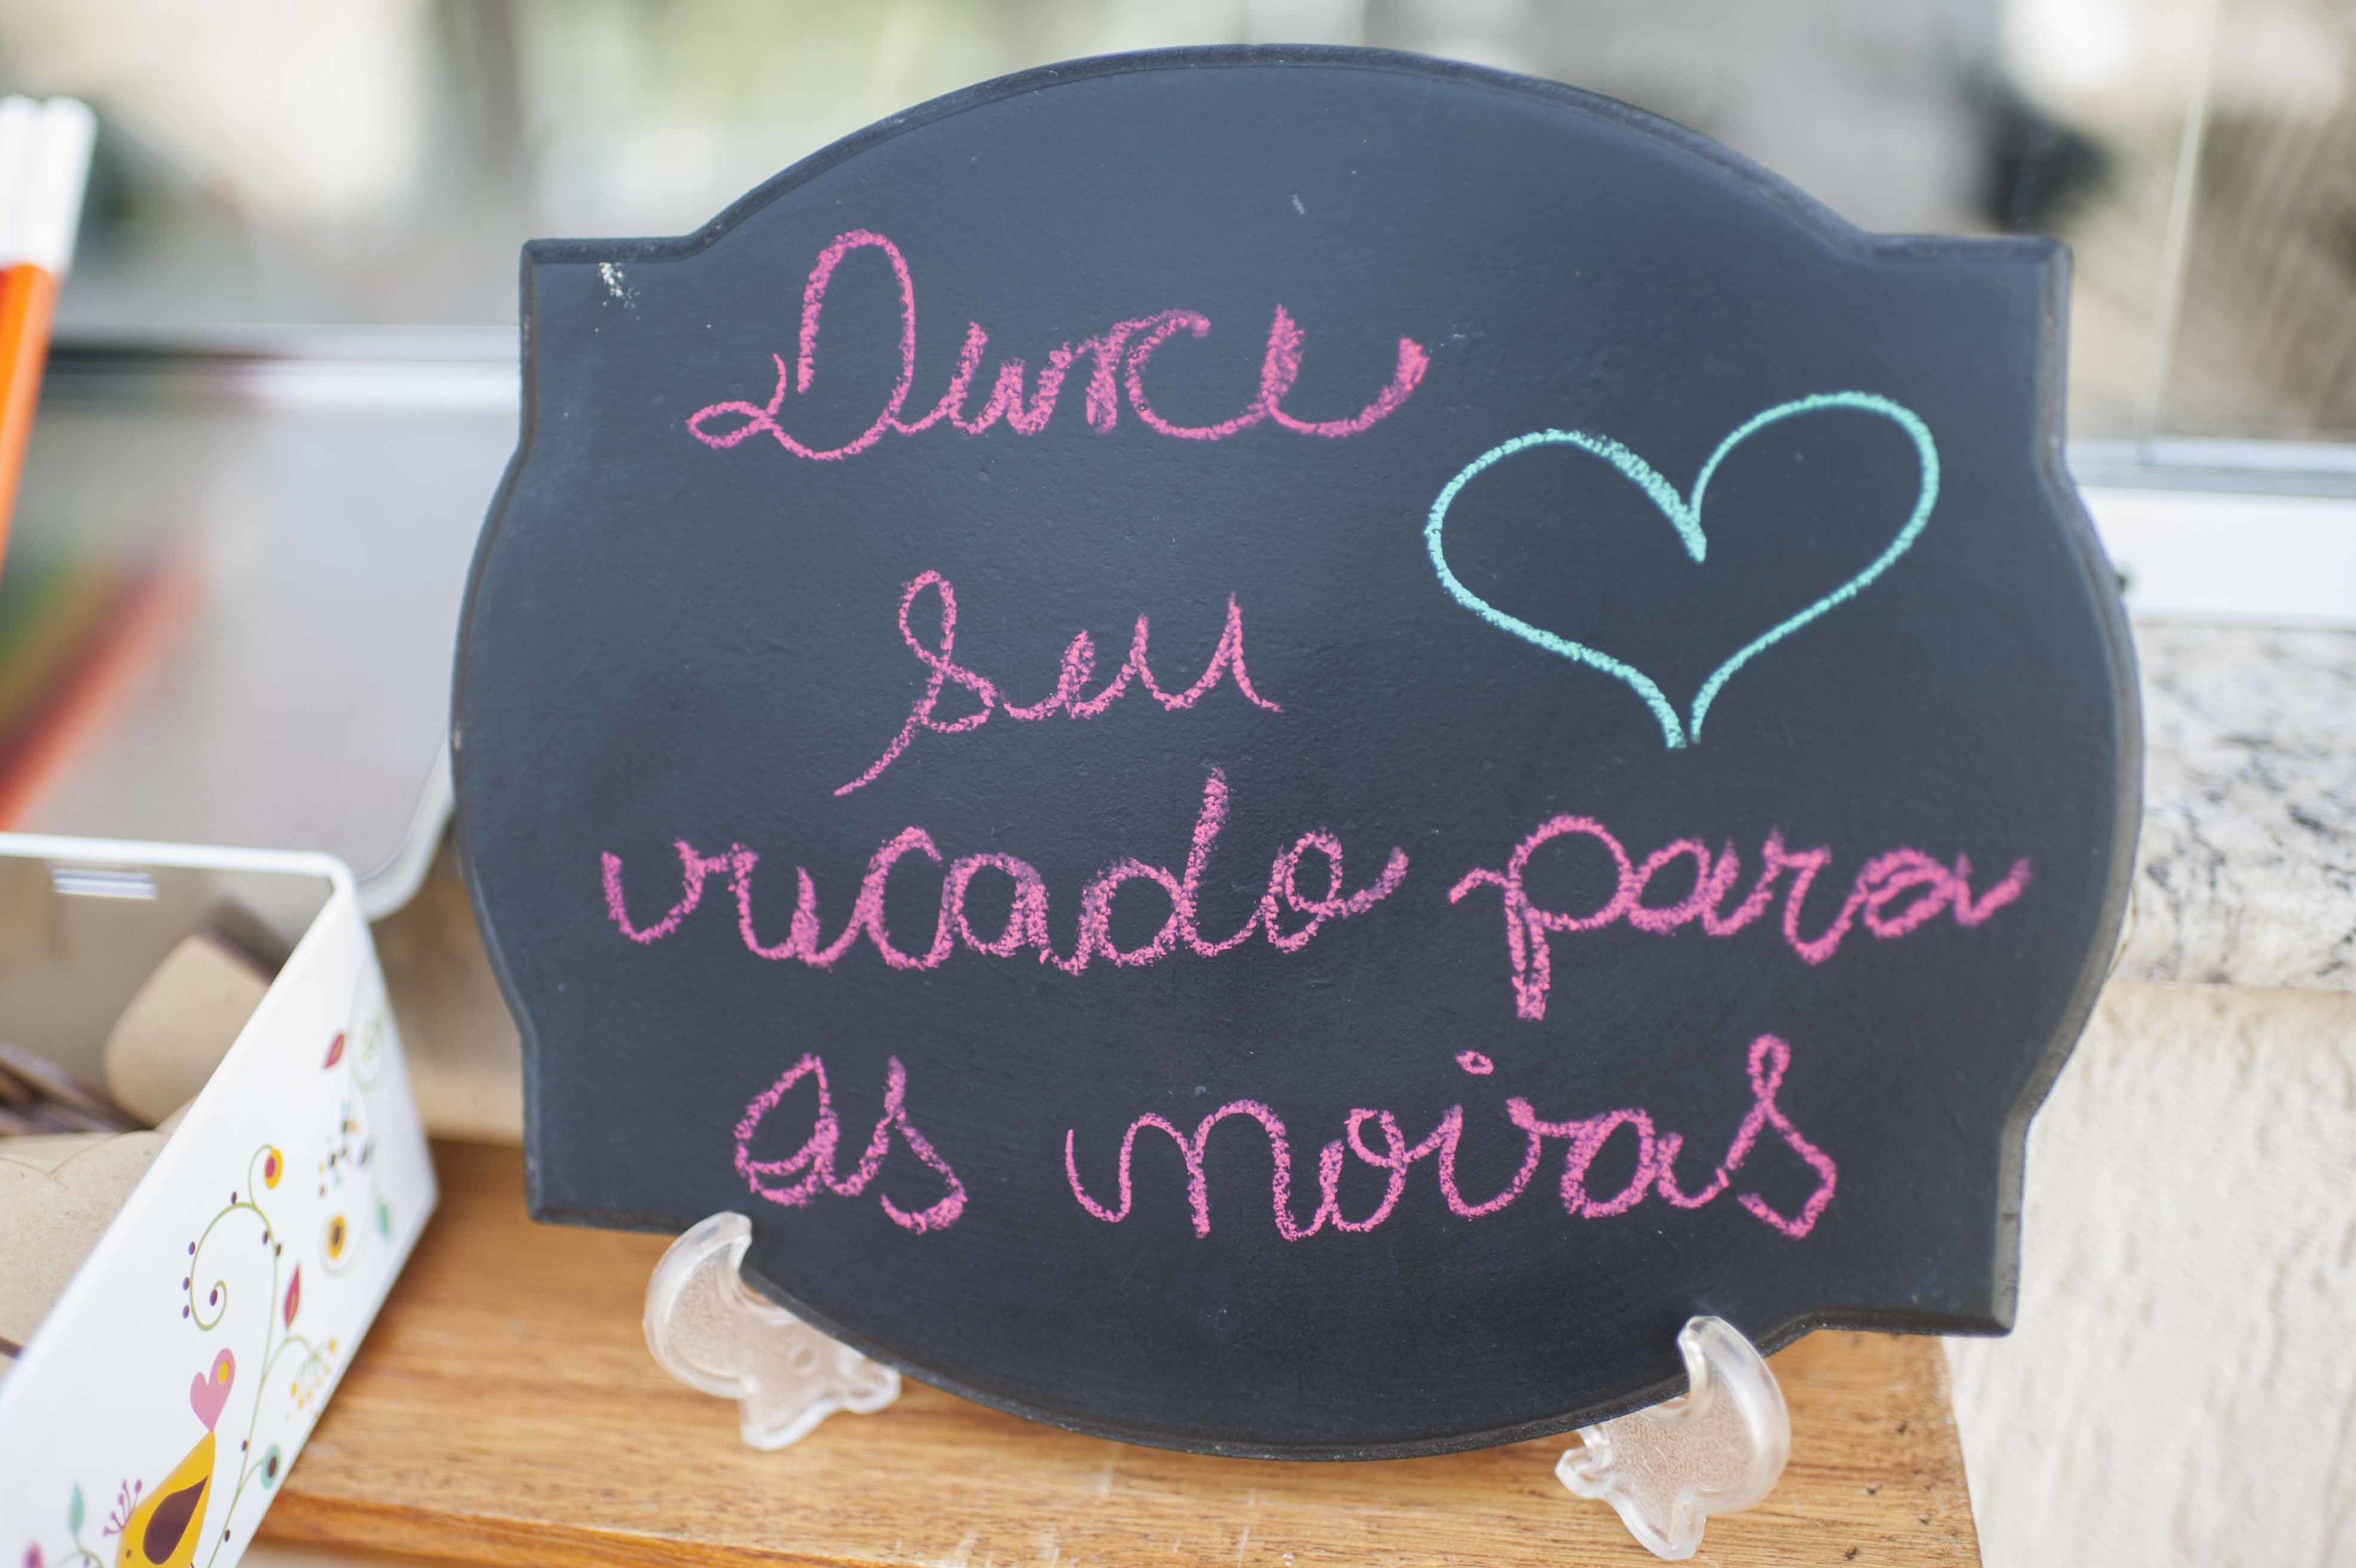 Deixe
seu
recado para
as noivas